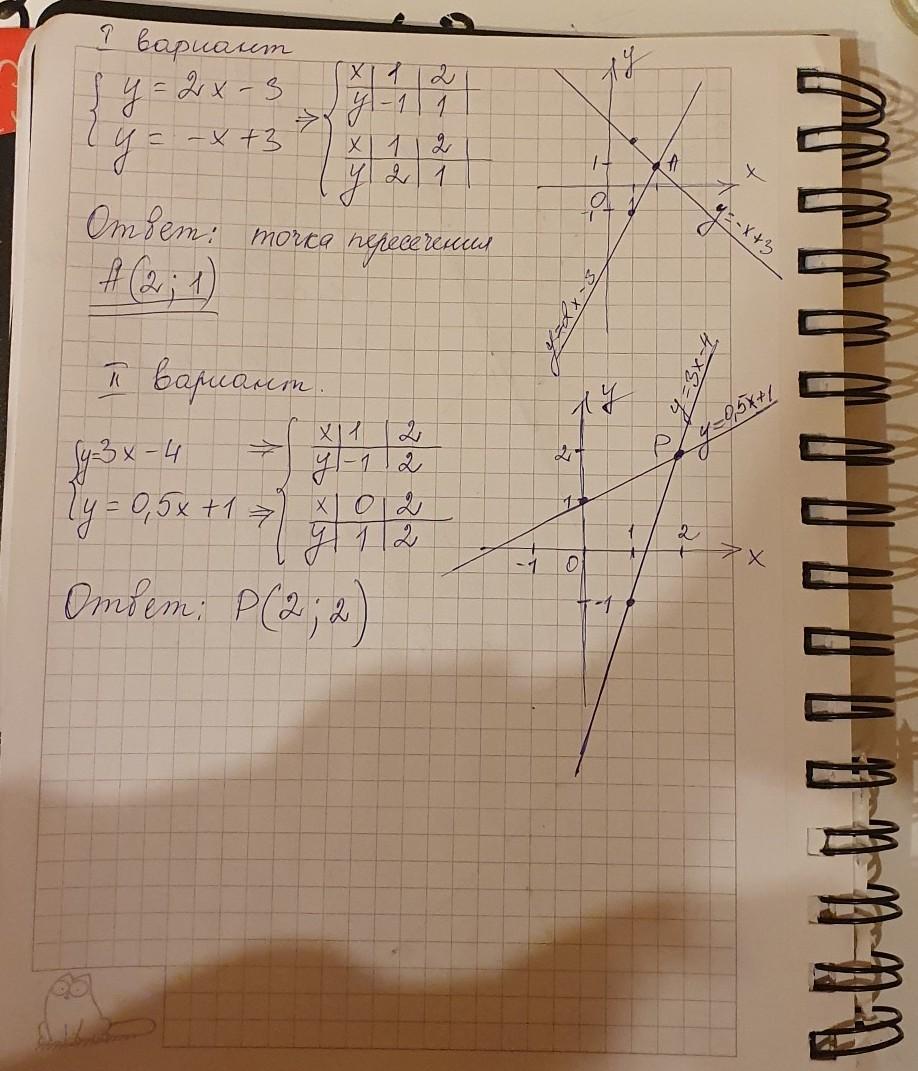 I вариант
y = 2x - 3
y = -x + 3
⇒
x | 1 | 2
y | -1 | 1
x | 1 | 2
y | 2 | 1
Ответ: точка пересечения
A(2; 1)
y
1
A
x
0
-1
1
y=-x+3
y=2x-3
II вариант.
y=3x-4 ⇒
y = 0,5x + 1 ⇒
x | 1 | 2
y | -1 | 2
x | 0 | 2
y | 1 | 2
Ответ: P(2; 2)
y
y=3x-4
y=0,5x+1
P
2
1
-1
0
1
2
x
-1